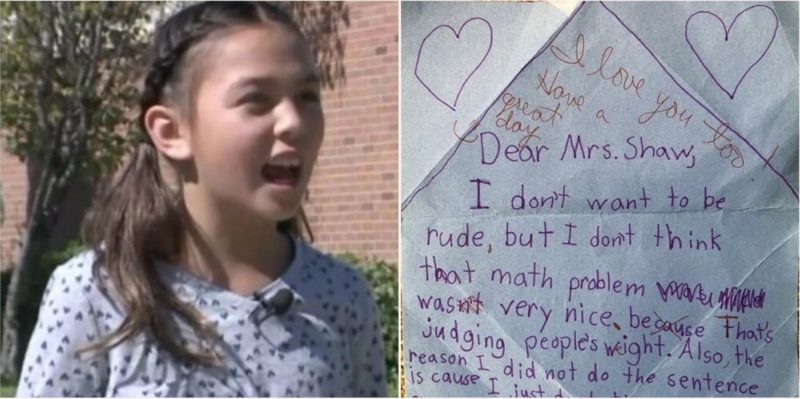 I love you too!
Have a
great
day
Dear Mrs. Shaw,
I don't want to be
rude, but I don't think
that math problem
wasn't very nice. because That's
judging people's weight. Also, the
reason I did not do the sentence
is cause I just